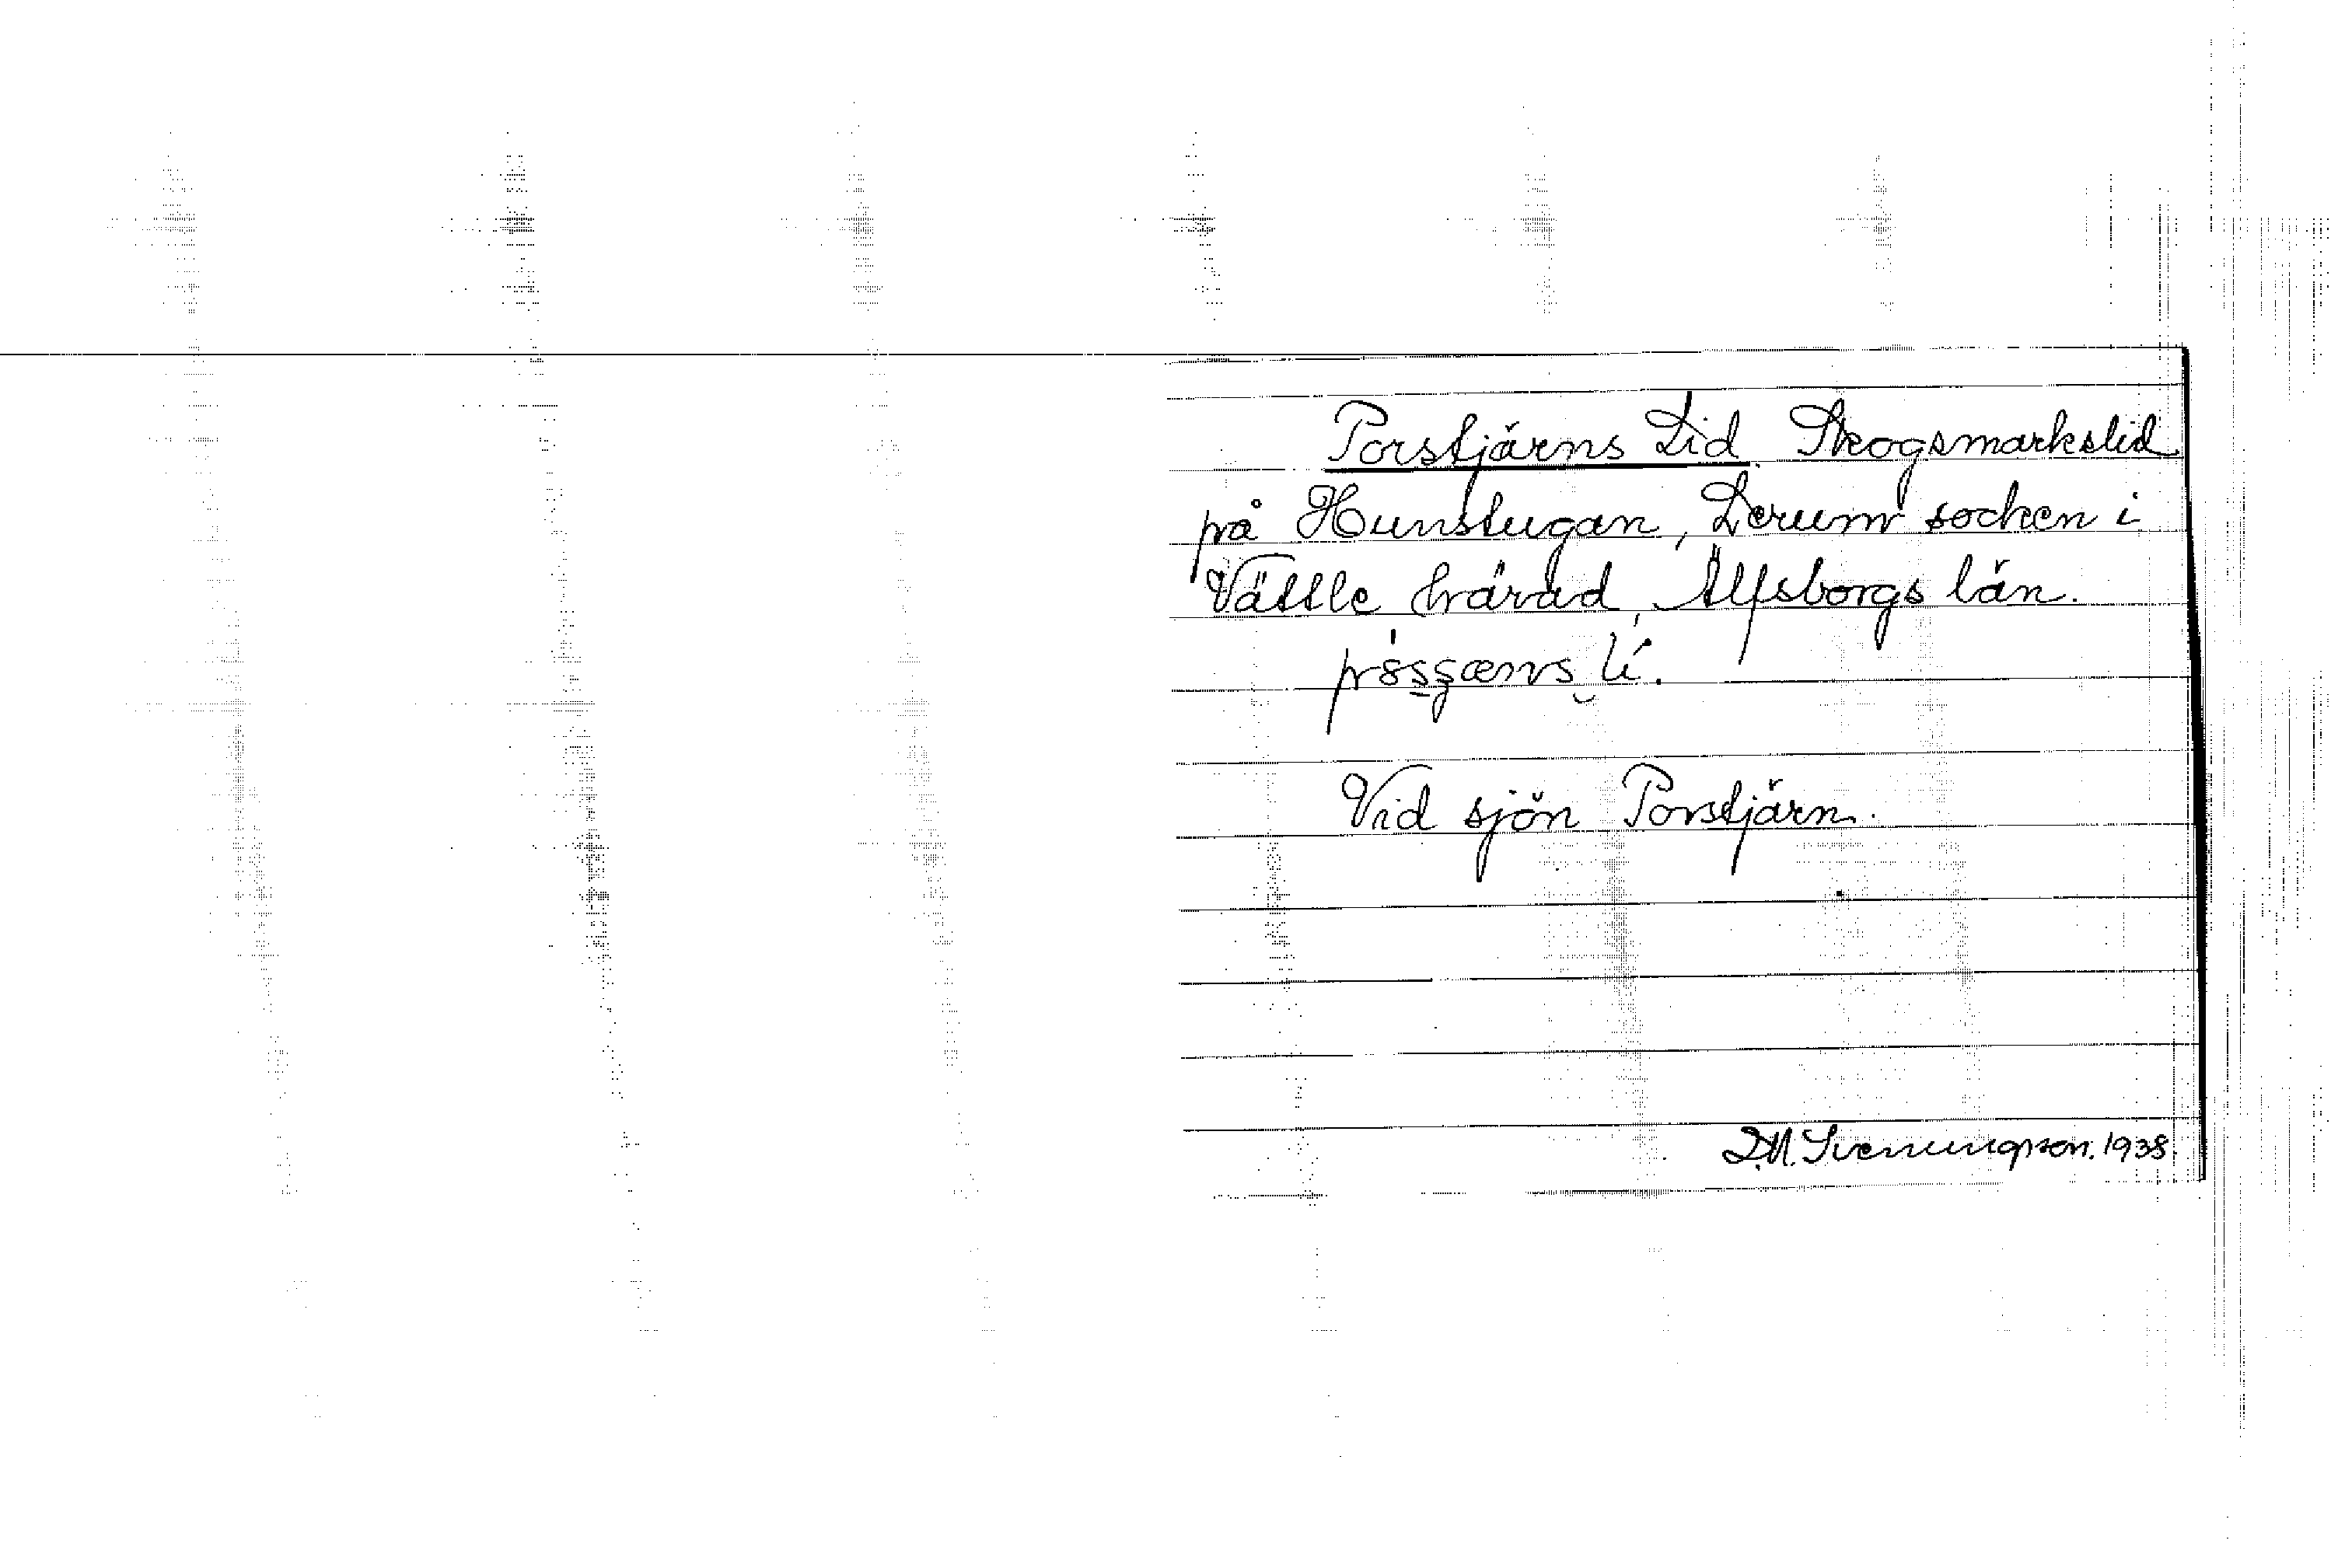 Porstjärns Lid. Skogsmarkslid
på Hunstugan, Lerum socken i
Vättle härad, Älfsborgs län.
Vid sjön Porstjärn.
D.N. Svenungsson. 1938.